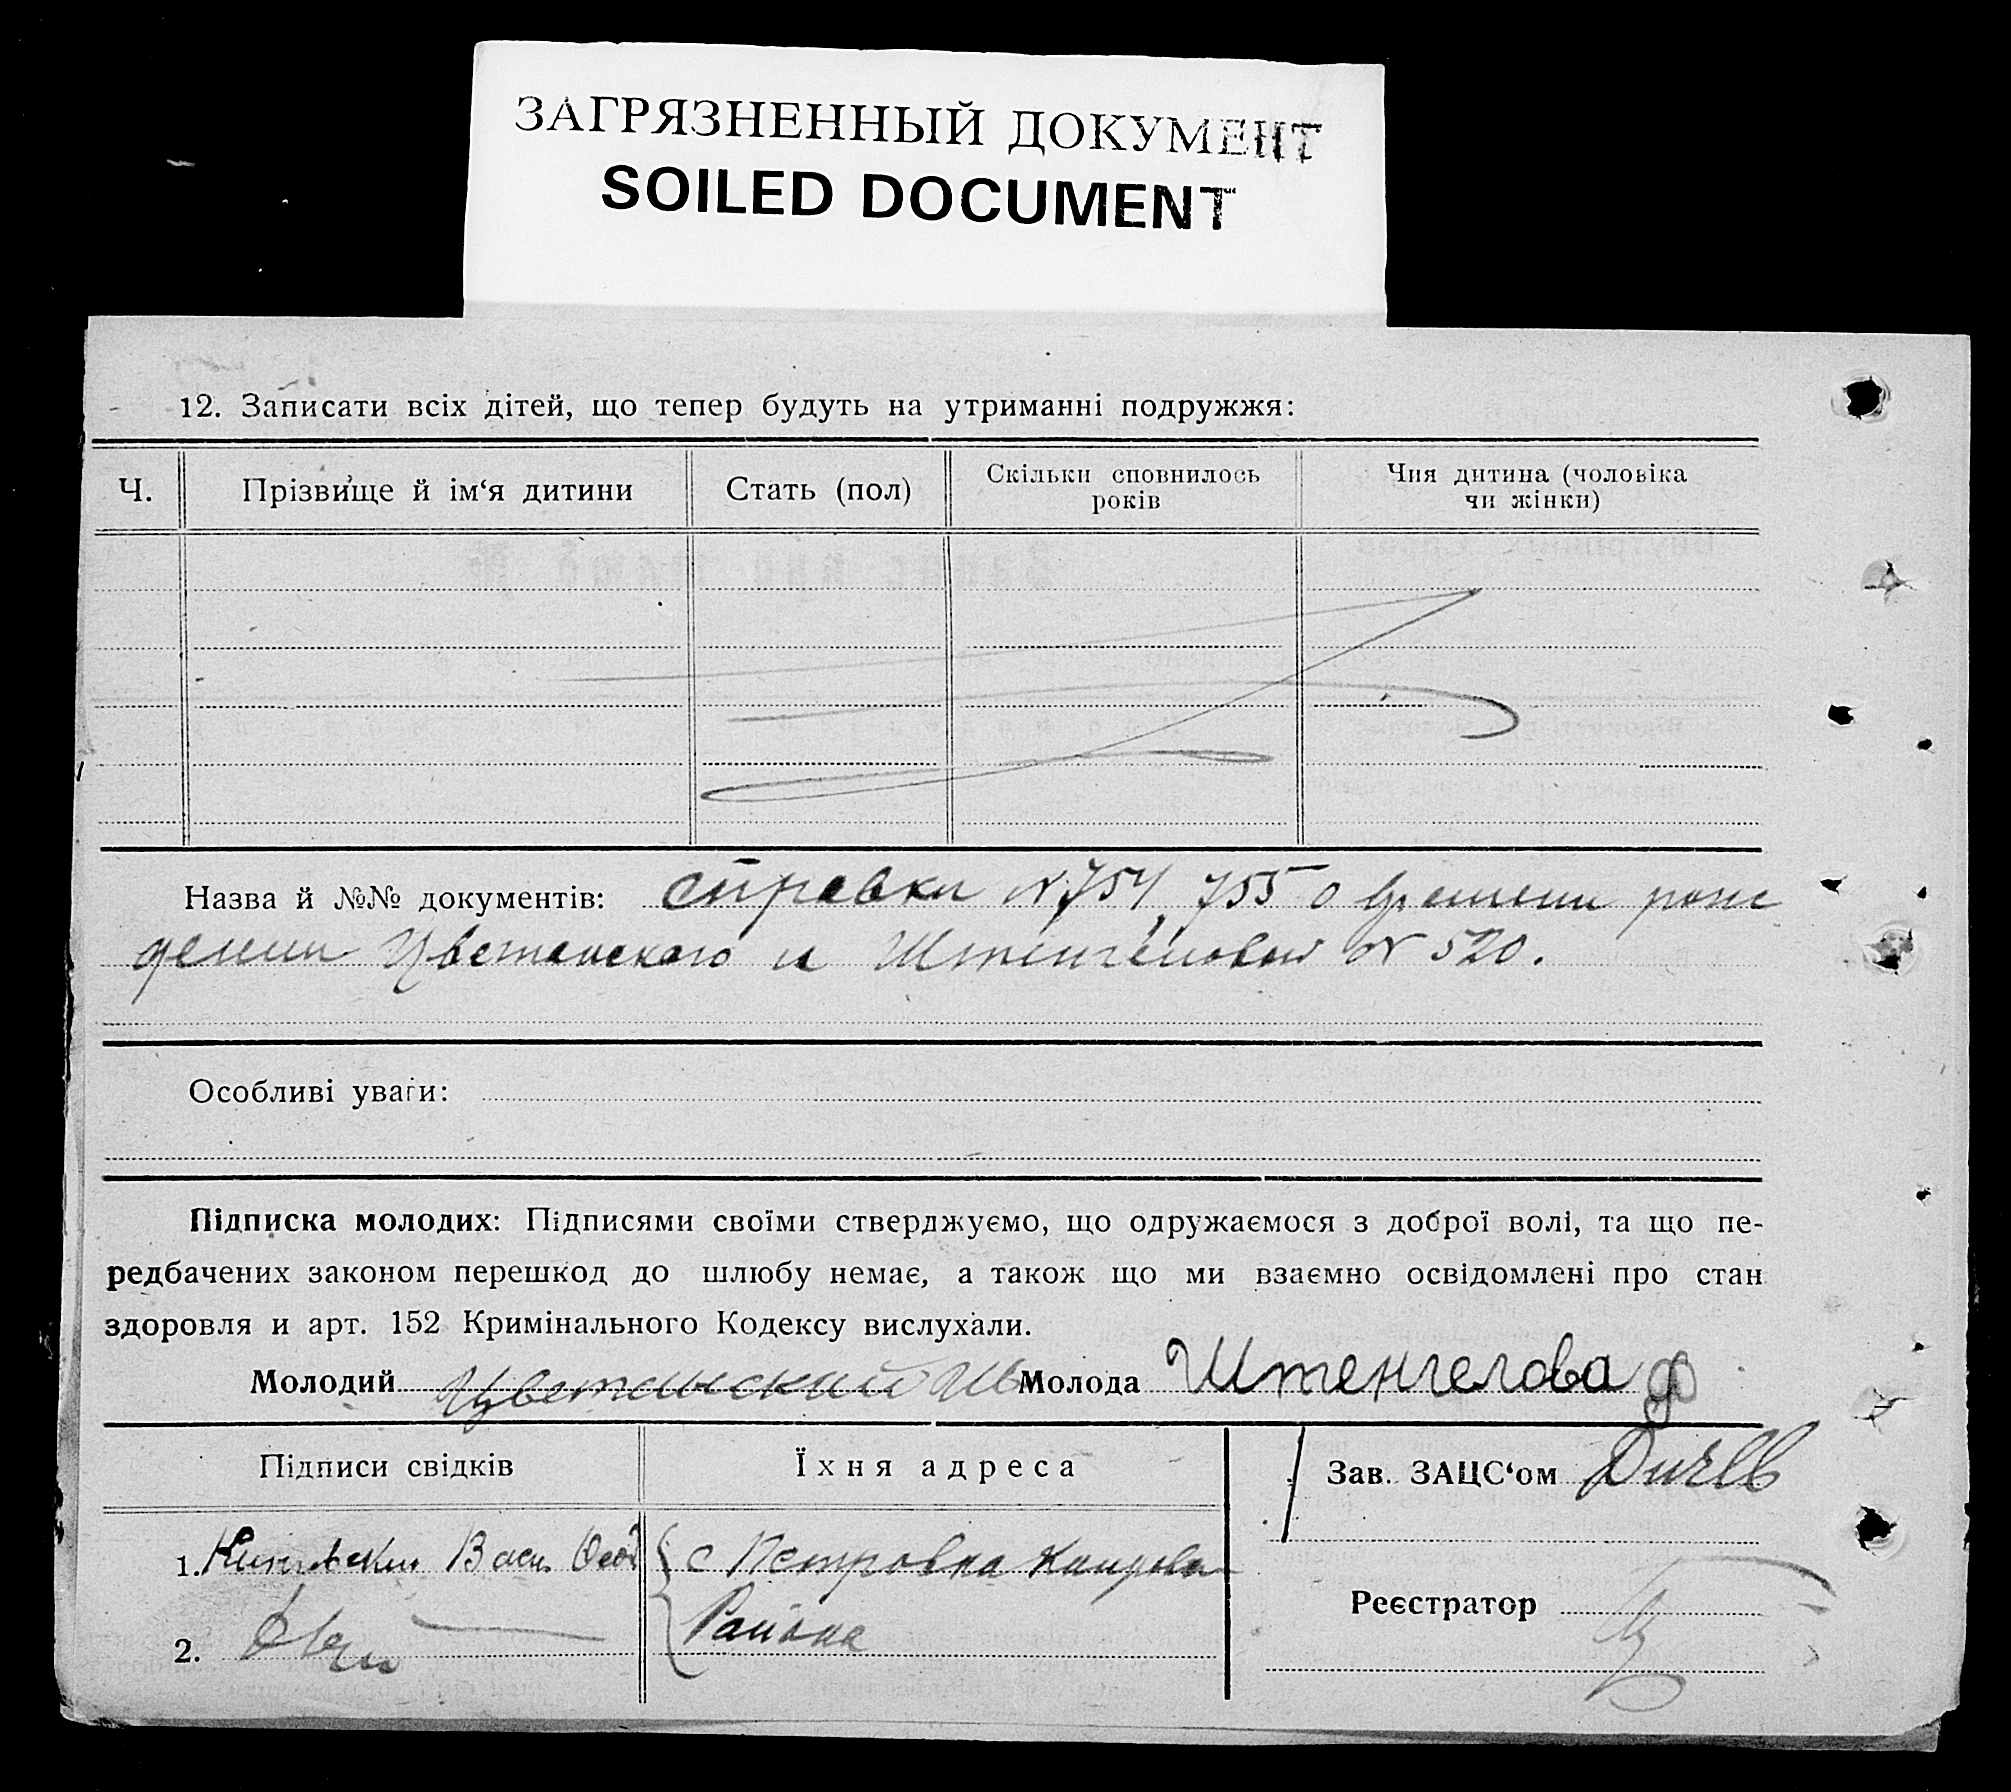 ЗАГРЯЗНЕННЫЙ ДОКУМЕНТ
SOILED DOCUMENT
12. Записати всіх дітей, що тепер будуть на утриманні подружжя:
Ч. Прізвище й ім‘я дитини Стать (пол) Скільки сповнилось років Чия дитина (чоловіка чи жінки)
Назва й №№ документів: справки N 754, 755 о времени рож
дении Цветанского и Штенгеловой N 520.
Особливі уваги:
Підписка молодих: Підписями своїми стверджуємо, що одружаємося з доброї волі, та що пе-
редбачених законом перешкод до шлюбу немає, а також що ми взаємно освідомлені про стан
здоровля и арт. 152 Кримінального Кодексу вислухали.
Молодий Цветанский Ив Молода Штенгелова Ф
Підписи свідків Їхня адреса Зав. ЗАЦС‘ом
1. Васи с Петровка
Реєстратор
2. Района